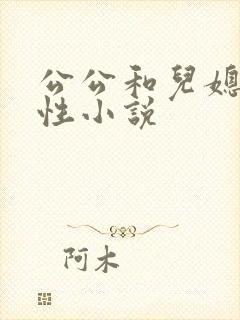 公公和兒媳
性小說
阿木